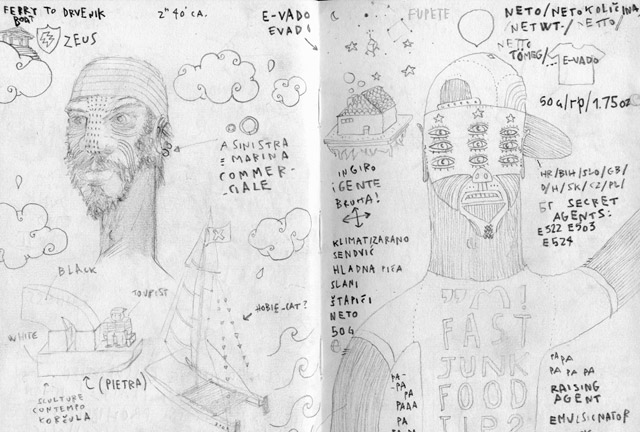 FERRY TO DRVENIK
BOAT
ZEUS
2" 40' CA.
E-VADO
EVADI
A SINISTRA
E MARINA
COMMER-
-CIALE
BLACK
TOURIST
WHITE
HOBIE-CAT?
(PIETRA)
SCULTURE
CONTEMPO
KORČULA
FUPETE
NETO/NETO KOLIČINA
/NETWT./NETTO/
NETTO
TÖMEG/
E-VADO
50G/rp/1.75oz
IN GIRO
IGENTE
BRUMA!
KLIMATIZARANO
SENDVIČ
HLADNA PIĆA
SLANI
ŠTAPIĆI
NETO
50G
HR/BIH/SLO/GB/
D/H/SK/CZ/PL/
SECRET
AGENTS:
E322 E503
E524
"M!
FAST
JUNK
FOOD
TIP?
PA-
-PA
PA
PAPA
PA
PA PA
PA PA PA
RAISING
AGENT
EMULSIONATOR